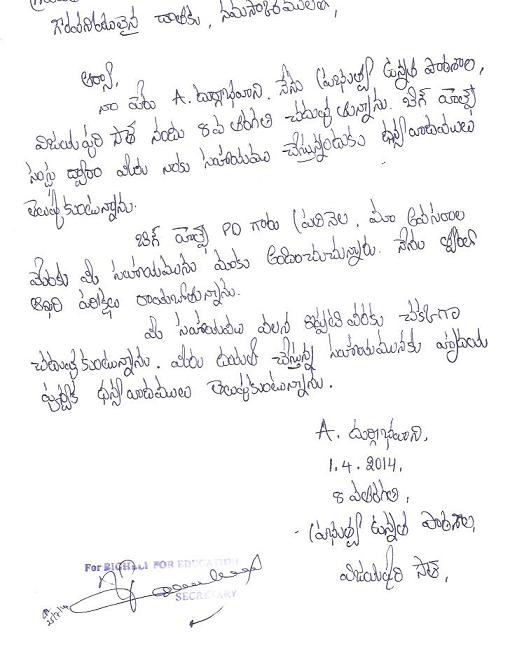 గౌరవనీయులైన దాతకు, నమస్కారములు,
ఆర్యా,
నా పేరు A. దుర్గాభవాని. నేను ప్రభుత్వ ఉన్నత పాఠశాల,
విజయపురి సౌత్ నందు 8వ తరగతి చదువుతున్నాను. బిగ్ హెల్ప్
సంస్థ ద్వారా మీరు నాకు సహాయము చేస్తున్నందుకు ధన్యవాదములు
తెలుపుకుంటున్నాను.
బిగ్ హెల్ప్ PD గారు ప్రతినెల, మా అవసరాల
మేరకు మీ సహాయమును మాకు అందించుచున్నారు. నేను
ఆఖరి పరీక్షలు రాయబోతున్నాను.
మీ సహాయము వలన ఇప్పటి వరకు చక్కగా
చదువుకుంటున్నాను. మీరు దయతో చేస్తున్న సహాయమునకు హృదయ
పూర్వక ధన్యవాదములు తెలుపుకుంటున్నాను.
A. దుర్గాభవాని,
1.4.2014,
8 వతరగతి,
ప్రభుత్వ ఉన్నత పాఠశాల,
విజయపురి సౌత్,
For BIGHELP FOR EDUCATION
SECRETARY